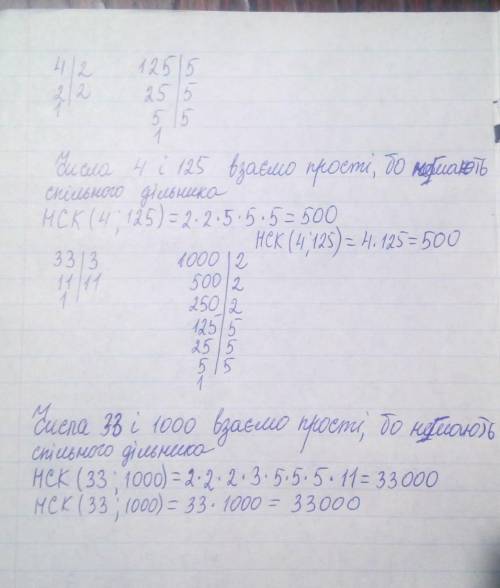 4|2 125|5
2|2 25|5
1 5|5
1
Числа 4 і 125 взаємо прості, бо не мають
спільного дільника
НСК (4 ; 125) = 2 · 2 · 5 · 5 · 5 = 500
НСК (4 ; 125) = 4 · 125 = 500
33|3 1000|2
11|11 500|2
1 250|2
125|5
25|5
5|5
1
Числа 33 і 1000 взаємо прості, бо не мають
спільного дільника
НСК (33 ; 1000) = 2 · 2 · 2 · 3 · 5 · 5 · 5 · 11 = 33000
НСК (33 ; 1000) = 33 · 1000 = 33000